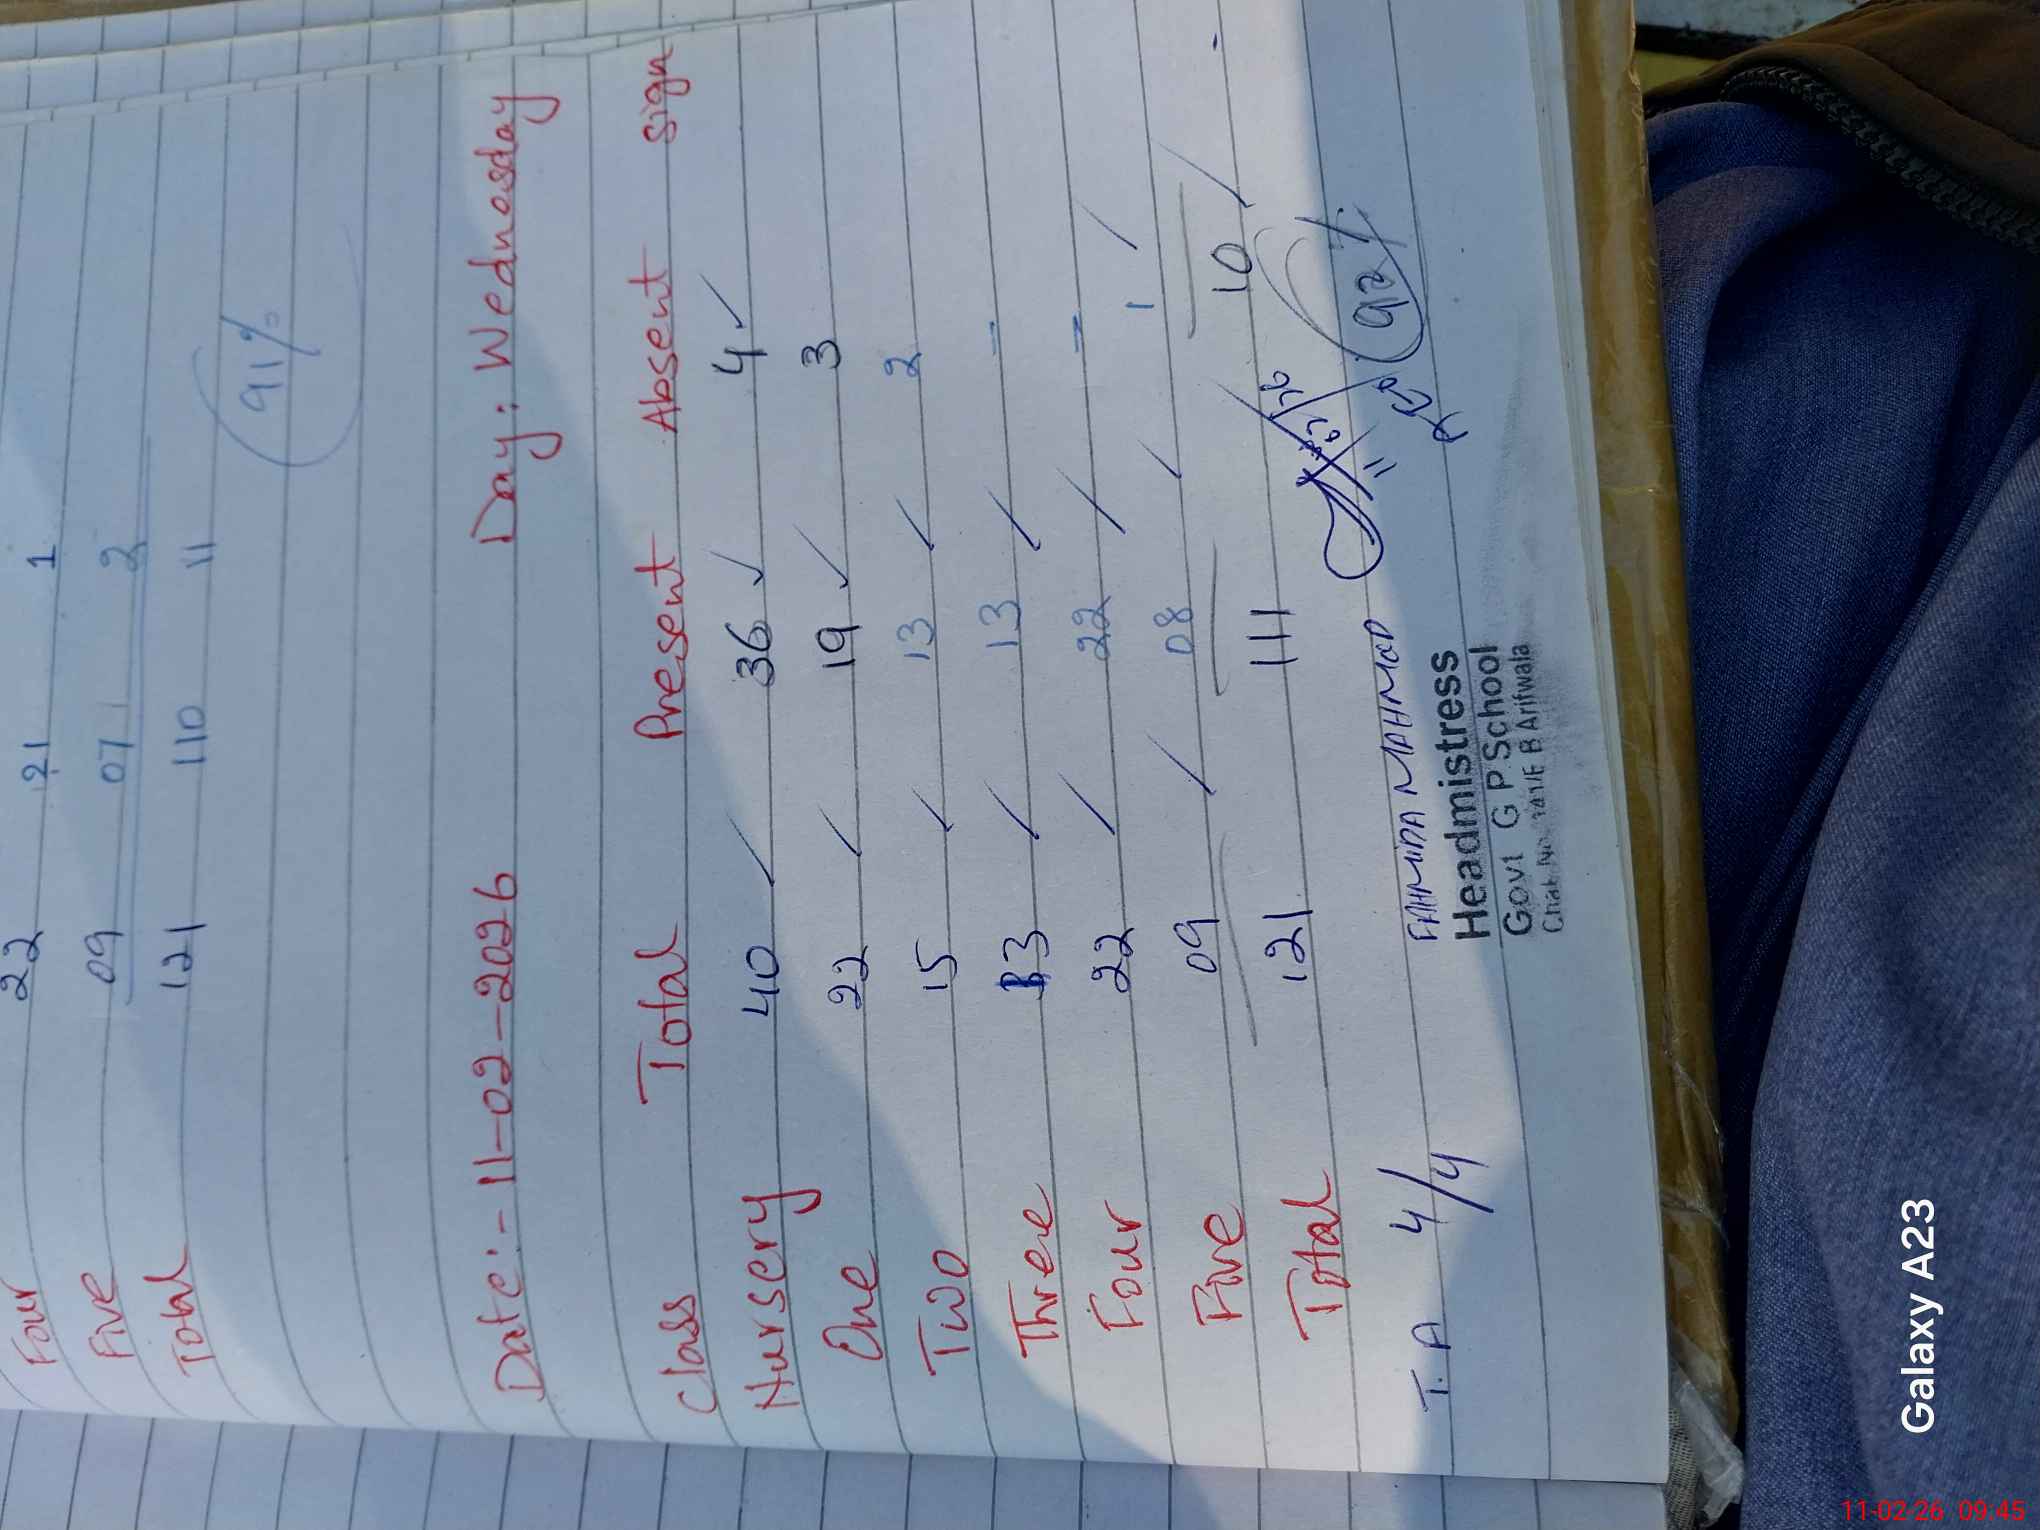 Four 22 21 1
Five 09 07 2
Total 121 110 11
91%
Date:- 11-02-2026 Day: Wednosday
Class Total Present Absent sign
Nursery 40 36 4
One 22 19 3
Two 15 13 2
Three 13 13 -
Four 22 22 -
Five 09 08 1
Total 121 111 10
92%
T.A 4/4
FAHMIDA MAHMOD
Headmistress
Govt G P School
Chak No. 141/E B Arifwala
Galaxy A23
11-02-26 09:45